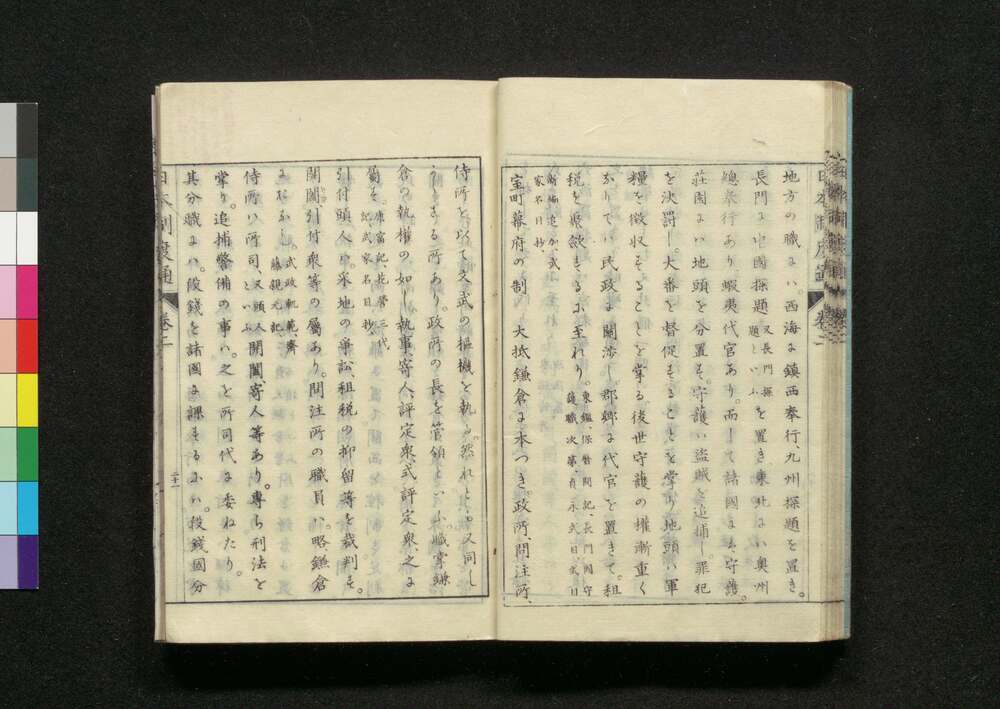 地方の職には。西海に鎮西奉行、九州探題を置き。
長門に中國探題又長門探題といふを置き東北には奥州
總奉行あり、蝦夷代官あり。而して諸國には守護。
荘園には地頭を分置す。守護は盗賊を追捕し罪犯
を決罰し。大番を督促することを掌り地頭は軍
糧を徴収することを掌る。後世守護の權漸重く
なりて。民政に關渉し。郡郷に代官を置きて。租
税を収歛するに至れり。東鑑、保暦間記、長門國守護職次第、貞永式目、武目
新編追加、武家名目抄、
室町幕府の制 大抵鎌倉に本つき。政所、問注所、
侍所を以て文武の樞機を執る。然れとも又同し
からさる所あり。政所の長を管領といふ。職掌鎌
倉の執權の如し執事、寄人、評定衆、式評定衆、之に
屬す。康富記、花營三代記、武家名目抄、
引付頭人は。采地の爭訟、租税の抑留等を裁判す。
開闔、引付衆等の屬あり。問注所の職員は略鎌倉
に同し。武政軌範、齋藤親元記、
侍所は所司、又頭人といふ開闔、寄人等あり。專ら刑法を
掌り。追捕警備の事は。之を所司代に委ねたり。
其分職には。段錢を諸國に課するには。段錢國分
日本制度通 卷二
二十一